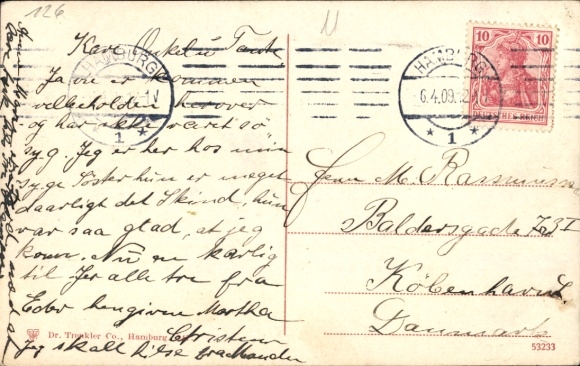 126
Kære Onkel u Tante
Ja nu er kommen
velbeholden herover
og har ikke været sø
syg. Jeg er her hos min
syge Søster hun er meget
daarligt det Skind, hun
var saa glad, at jeg
kom. Nu en kærlig
til Jer alle tre fra
Eders hengivne Martha
Christen
Jeg skall hilse fra Manden
HAMBURG
1
HAMBURG
6.4.09
* 1 *
10 10
DEUTSCHES REICH
Herr M. Rasmussen
Baldersgade 73 I
København L.
Danmark
Dr. Trenkler Co., Hamburg
53233